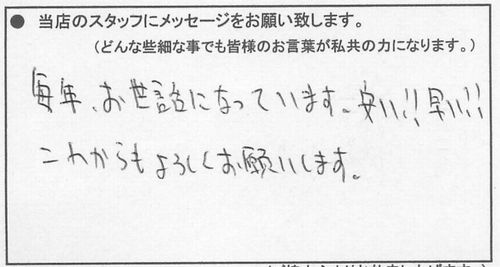 ● 当店のスタッフにメッセージをお願い致します。
(どんな些細な事でも皆様のお言葉が私共の力になります。)
毎年、お世話になっています。安い!!早い!!
これからもよろしくお願いします。